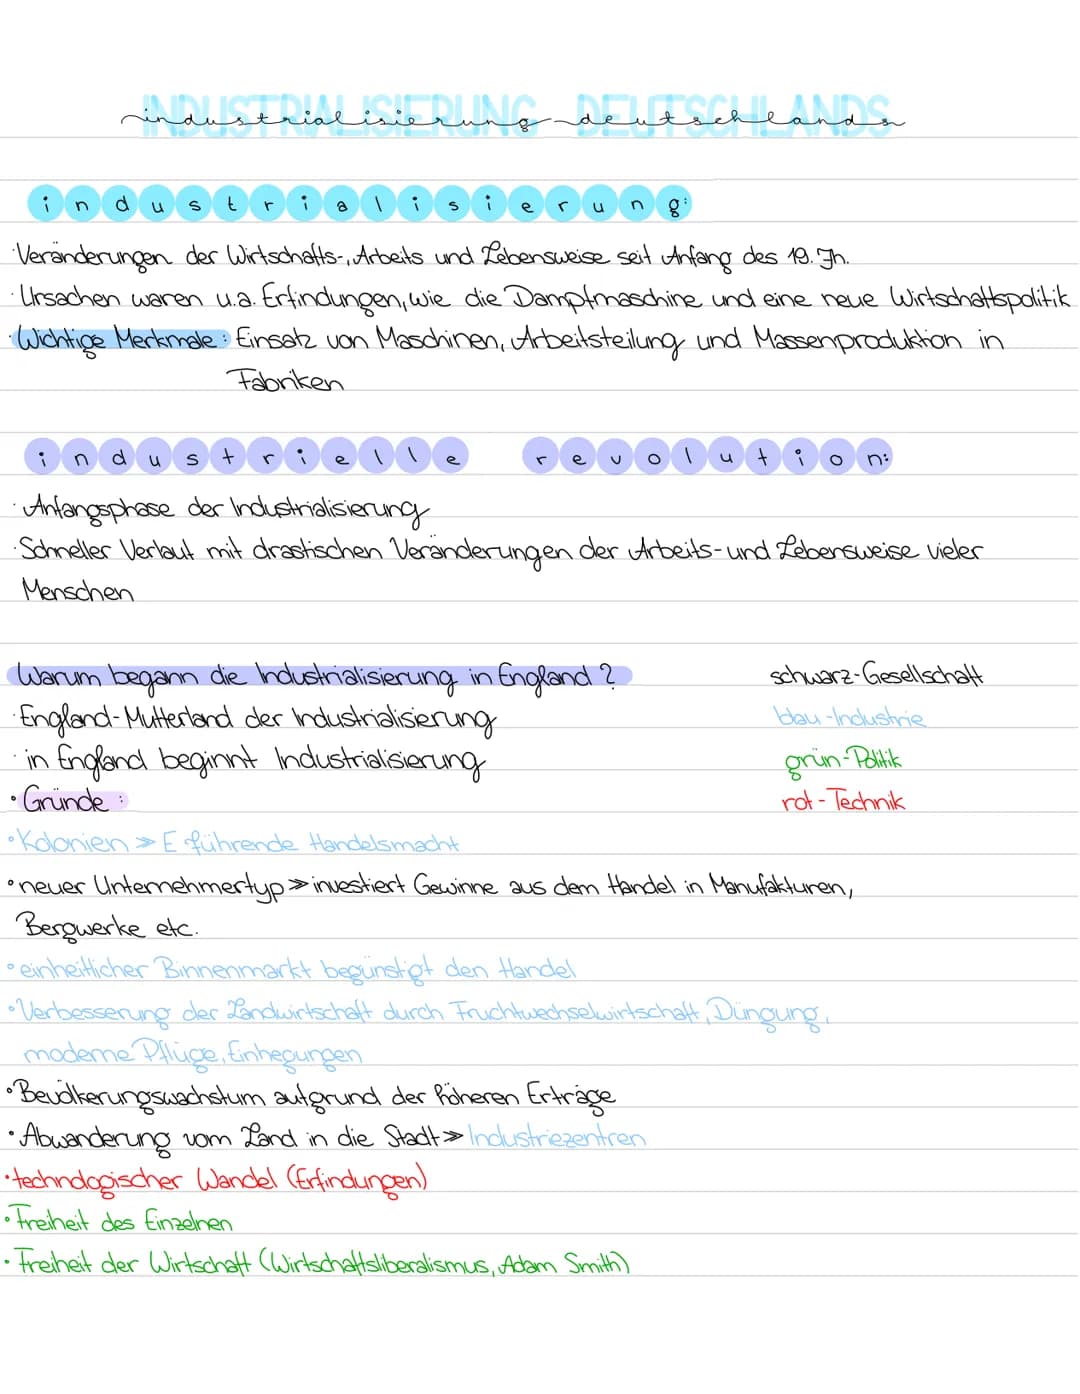 INDUSTRIALISIERUNG DEUTSCHLANDS
industrialisierung deutschlands
industrialisierung:
·Veränderungen der Wirtschafts-, Arbeits und Lebensweise seit Anfang des 19. Jh.
·Ursachen waren u.a. Erfindungen, wie die Dampfmaschine und eine neue Wirtschaftspolitik
·Wichtige Merkmale: Einsatz von Maschinen, Arbeitsteilung und Massenproduktion in
Fabriken
industrielle revolution:
·Anfangsphase der Industrialisierung
·Schneller Verlauf mit drastischen Veränderungen der Arbeits- und Lebensweise vieler
Menschen
Warum begann die Industrialisierung in England?
schwarz-Gesellschaft
·England-Mutterland der Industrialisierung
blau-Industrie
·in England beginnt Industrialisierung
grün-Politik
·Gründe:
rot-Technik
·Kolonien >> E führende Handelsmacht
·neuer Unternehmertyp >> investiert Gewinne aus dem Handel in Manufakturen,
Bergwerke etc.
·einheitlicher Binnenmarkt begünstigt den Handel
·Verbesserung der Landwirtschaft durch Fruchtwechselwirtschaft, Düngung,
moderne Pflüge, Einhegungen
·Bevölkerungswachstum aufgrund der höheren Erträge
·Abwanderung vom Land in die Stadt >> Industriezentren
·technologischer Wandel (Erfindungen)
·Freiheit des Einzelnen
·Freiheit der Wirtschaft (Wirtschaftsliberalismus, Adam Smith)